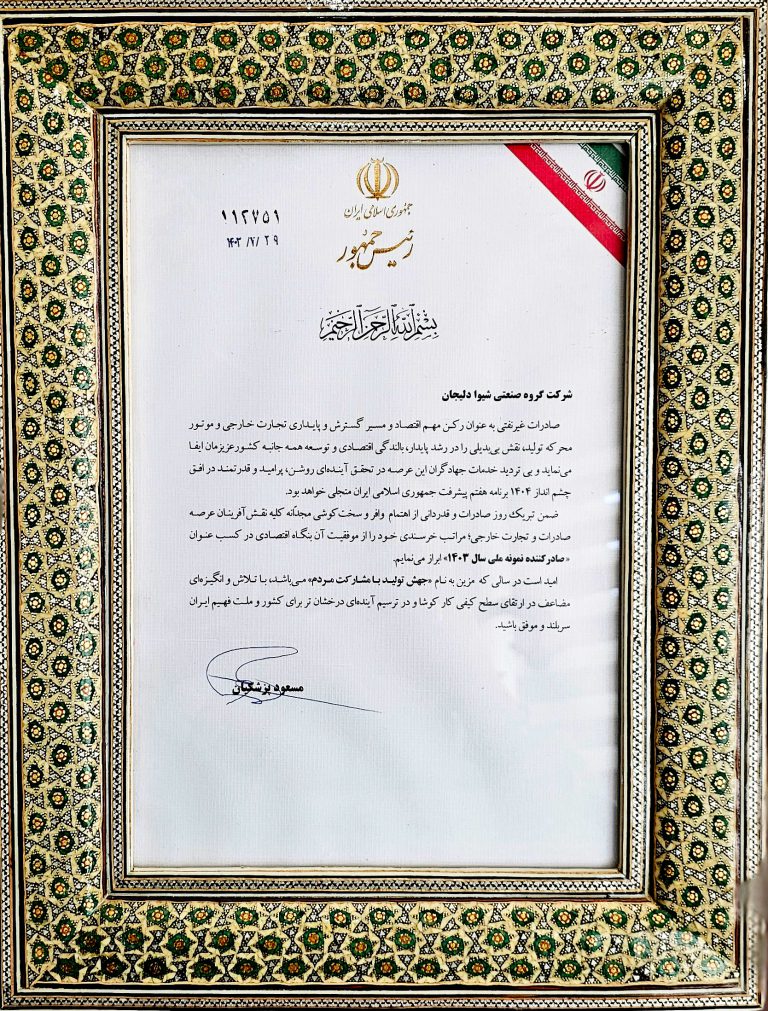 جمهوری اسلامی ایران
رئیس جمهور
۱۱۲۷۵۱
۱۴۰۳/۷/۲۹
بسم الله الرحمن الرحیم
شرکت گروه صنعتی شیوا دلیجان
صادرات غیرنفتی به عنوان رکن مهم اقتصاد و مسیر گسترش و پایداری تجارت خارجی و موتور
محرکه تولید، نقش بی‌بدیلی را در رشد پایدار، بالندگی اقتصادی و توسعه همه جانبه کشورعزیزمان ایفا
می‌نماید و بی تردید خدمات جهادگران این عرصه در تحقق آینده‌ای روشن، پرامید و قدرتمند در افق
چشم انداز ۱۴۰۴ برنامه هفتم پیشرفت جمهوری اسلامی ایران متجلی خواهد بود.
ضمن تبریک روز صادرات و قدردانی از اهتمام وافر و سخت‌کوشی مجدّانه کلیه نقش‌آفرینان عرصه
صادرات و تجارت خارجی؛ مراتب خرسندی خود را از موفقیت آن بنگاه اقتصادی در کسب عنوان
«صادرکننده نمونه ملی سال ۱۴۰۳» ابراز می‌نمایم.
امید است در سالی که مزین به نام «جهش تولید با مشارکت مردم» می‌باشد، با تلاش و انگیزه‌ای
مضاعف در ارتقای سطح کیفی کار کوشا و در ترسیم آینده‌ای درخشان تر برای کشور و ملت فهیم ایران
سربلند و موفق باشید.
مسعود پزشکیان